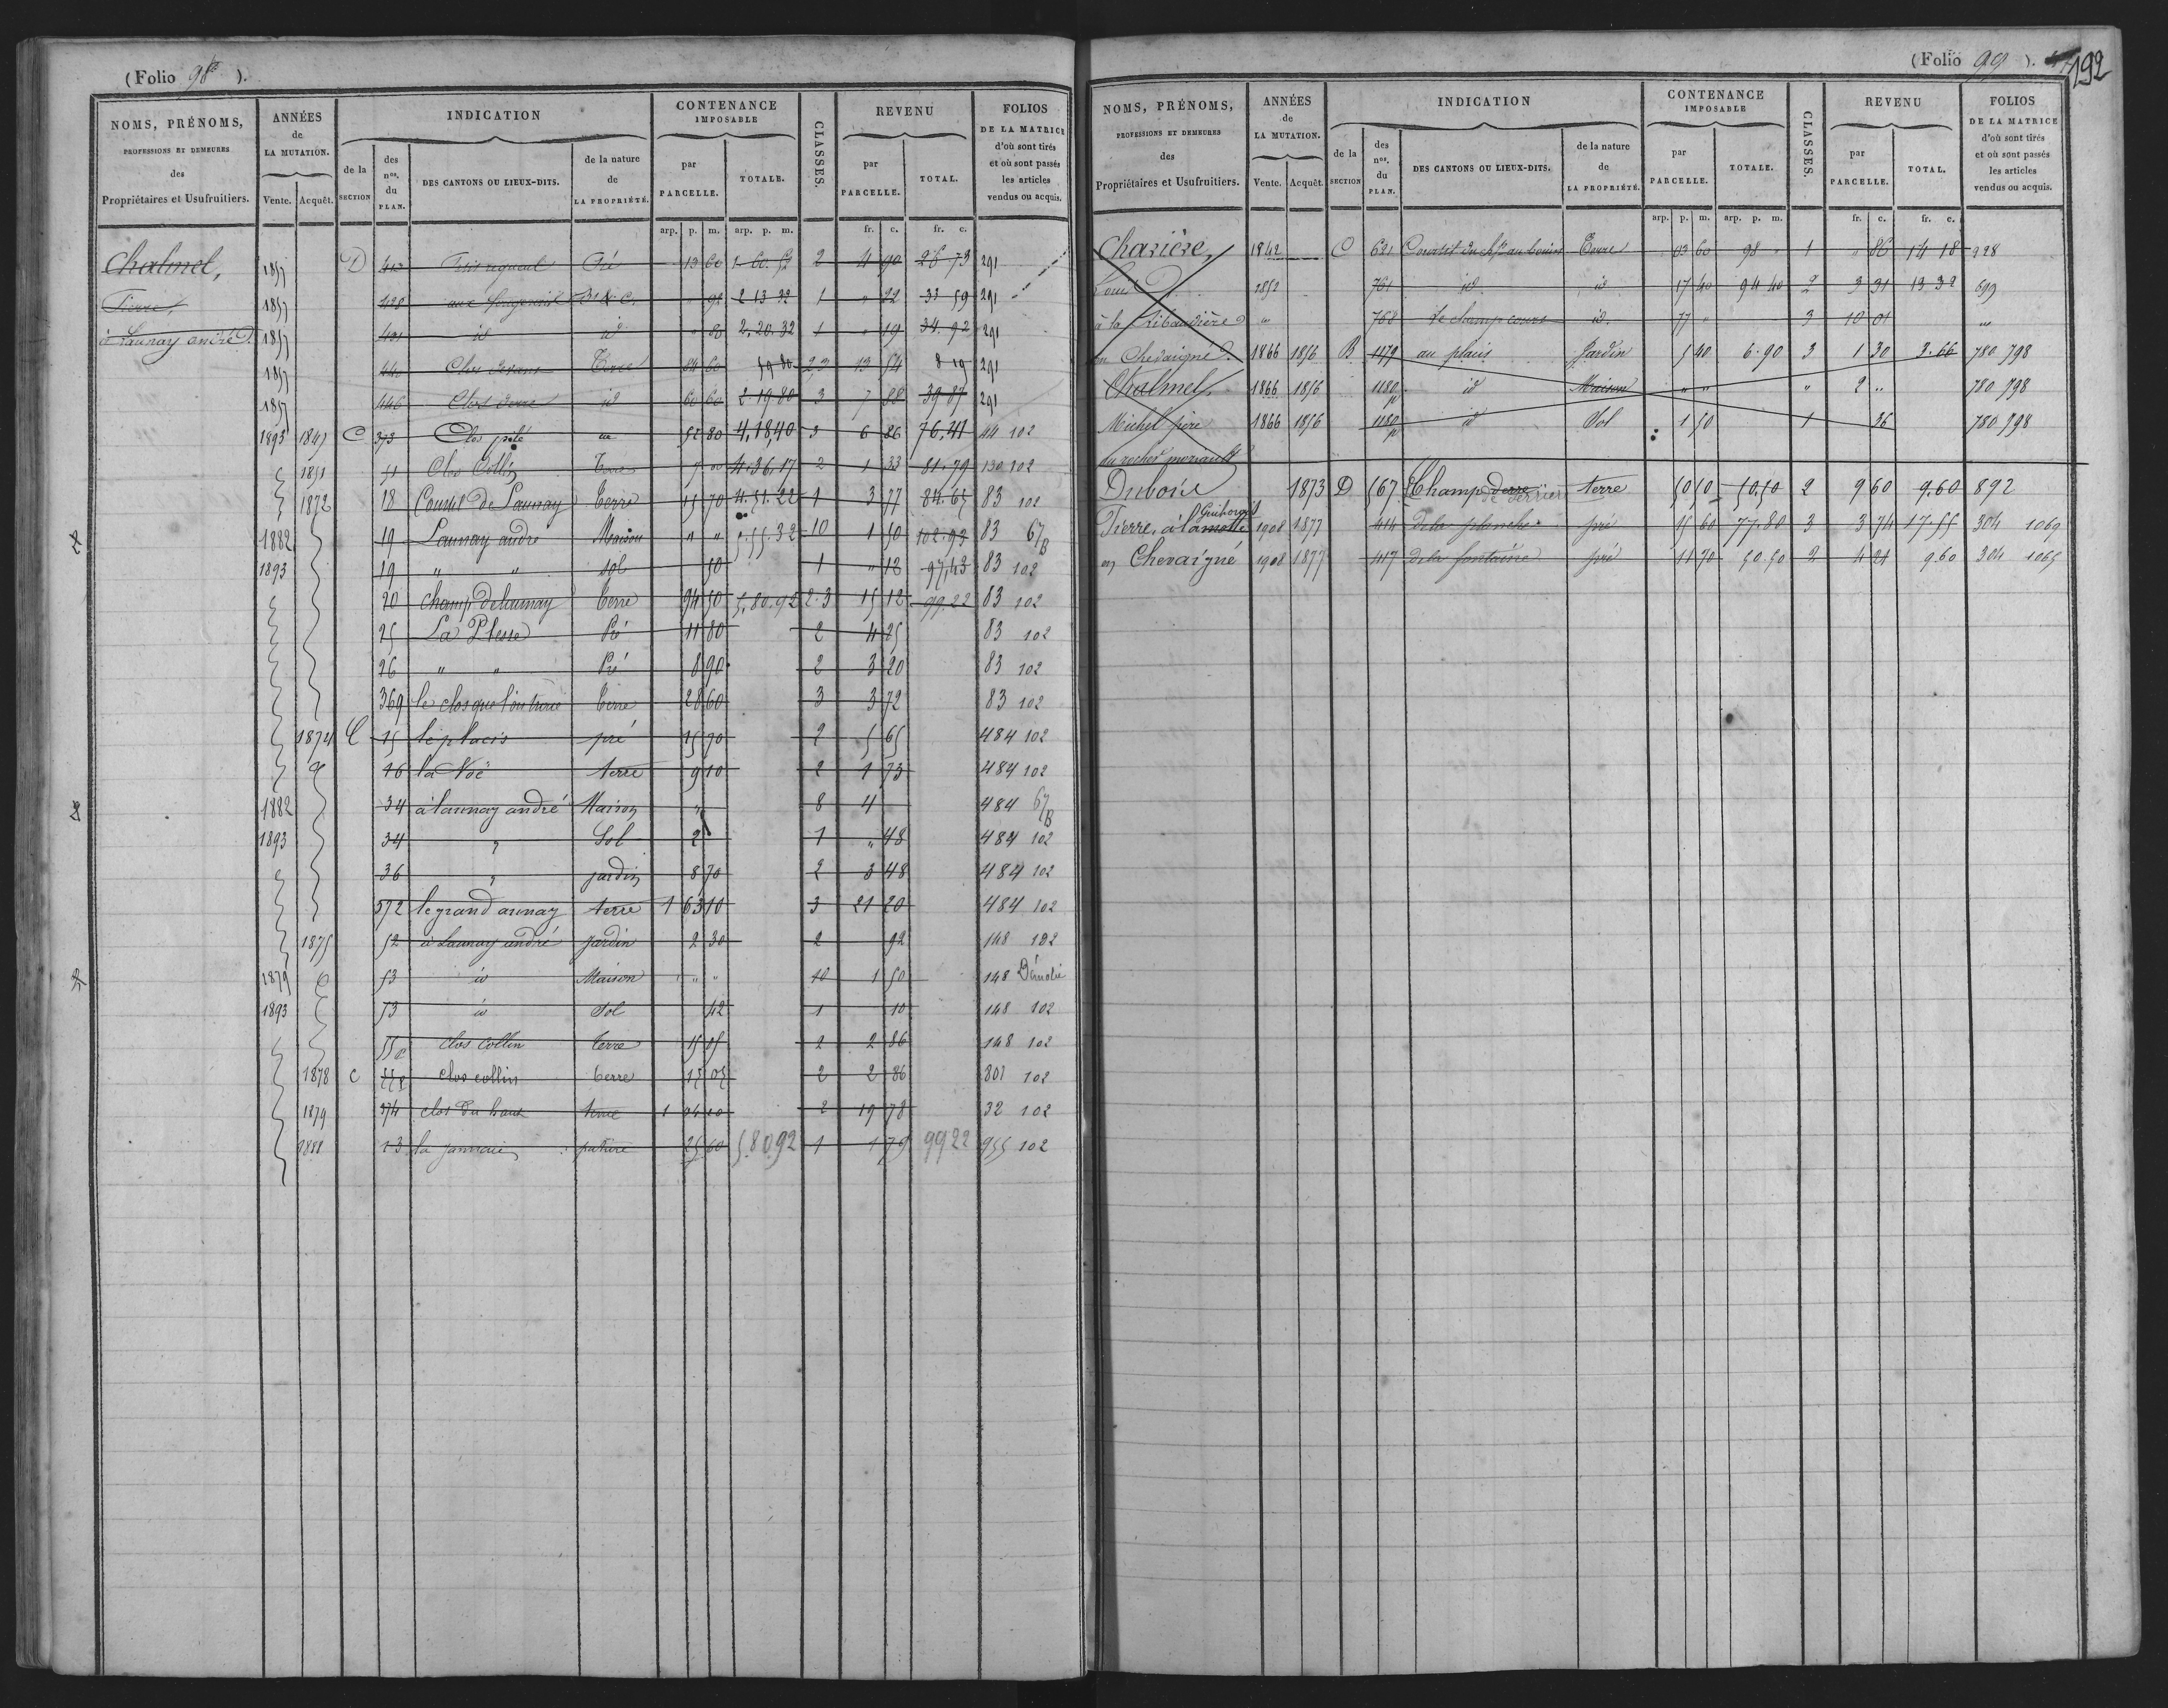 (Folio 98 ).
NOMS, PRÉNOMS, PROFESSIONS ET DEMEURES des Propriétaires et Usufruitiers.
ANNÉES de LA MUTATION. Vente. Acquêt.
INDICATION de la SECTION des nos. du PLAN. DES CANTONS OU LIEUX-DITS. de la nature de LA PROPRIÉTÉ.
CONTENANCE IMPOSABLE par PARCELLE. TOTALE.
CLASSES.
REVENU par PARCELLE. TOTAL.
FOLIOS DE LA MATRICE d'où sont tirés et où sont passés les articles vendus ou acquis.
arp. p. m. arp. p. m. fr. c. fr. c.
Chalmel, 1857 D 413 Pré 13 60 1 60 52 2 4 90 26 73 291
Pierre, 1857 420 " 92 2 13 32 1 " 22 33 59 291
à Launay andré 1857 421 id id " 80 2. 20. 32 1 " 19 34. 92 291
1857 Clos Terre 84 60 59 80 2,3 13 54 8 19 291
1857 446 Clos id 60 60 2 19 80 3 7 88 39 87 291
1893 1847 C 373 Clos 52 80 4,18,40 3 6 86 76,41 44 102
1851 51 Clos Collin Terre 7 00 4.36,17 2 1 33 81.79 130 102
1872 18 Courtil de Launay Terre 15 70 4.51.22 1 3 77 84.65 83 102
1882 19 Launay andré Maison " " 5.55.32 10 1 50 102.93 83 67/B
1893 19 " " sol 50 1 " 12 97,43 83 102
20 champ delaunay Terre 94 50 5,80.92 2.3 15 12 99.22 83 102
25 La Plesse Pré 11 80 2 4 25 83 102
26 " " Pré 8 90 2 3 20 83 102
369 le clos Terre 28 60 3 3 72 83 102
1874 C 15 le placis pré 15 70 2 5 65 484 102
16 la Noë terre 9 10 2 1 73 484 102
1882 34 à launay andré Maison " 8 4 484 67/B
1893 34 " Sol 2 1 " 48 484 102
36 " jardin 8 70 2 3 48 484 102
572 le grand aunay terre 1 63 10 3 21 20 484 102
1875 52 à Launay andré jardin 2 30 2 92 148 102
1879 53 id Maison " " 10 1 50 148 Démolie
1893 53 id Sol 42 1 10 148 102
55p clos collin terre 15 05 2 2 86 148 102
1878 C 55p clos collin terre 15 05 2 2 86 801 102
1879 374 clos du haut terre 1 04 10 2 19 78 32 102
1881 13 la jannaie pâture 25 60 5.80.92 1 1 79 99 22 955 102
(Folio 99 ). 192
NOMS, PRÉNOMS, PROFESSIONS ET DEMEURES des Propriétaires et Usufruitiers.
ANNÉES de LA MUTATION. Vente. Acquêt.
INDICATION de la SECTION des nos. du PLAN. DES CANTONS OU LIEUX-DITS. de la nature de LA PROPRIÉTÉ.
CONTENANCE IMPOSABLE par PARCELLE. TOTALE.
CLASSES.
REVENU par PARCELLE. TOTAL.
FOLIOS DE LA MATRICE d'où sont tirés et où sont passés les articles vendus ou acquis.
arp. p. m. arp. p. m. fr. c. fr. c.
Charière, 1842 C 621 Courtil du Terre 03 60 98 " 1 " 86 14 18 228
Louis 1852 761 id. id 17 40 94 40 2 3 31 13 32 699
à la Ribaudière " 768 Le champ id. 77 " 3 10 01 "
en Chevaigné. 1866 1856 B 1179 au plais Jardin 5 40 6.90 3 1 30 3.66 780 798
Chalmel, 1866 1856 1180p id Maison " " " 2 " 780 798
Michel père 1866 1856 1180p id Sol 1 50 1 36 780 798
du rocher
Dubois 1873 D 567 Champ de derrière terre 50 10 50.50 2 9 60 9.60 892
Pierre, à lamotte 1908 1877 414 de la planche pré 15 60 77.80 3 3 74 17.55 304 1069
en Chevaigné 1908 1877 417 de la fontaine pré 11 70 50.50 2 4 21 9.60 304 1065